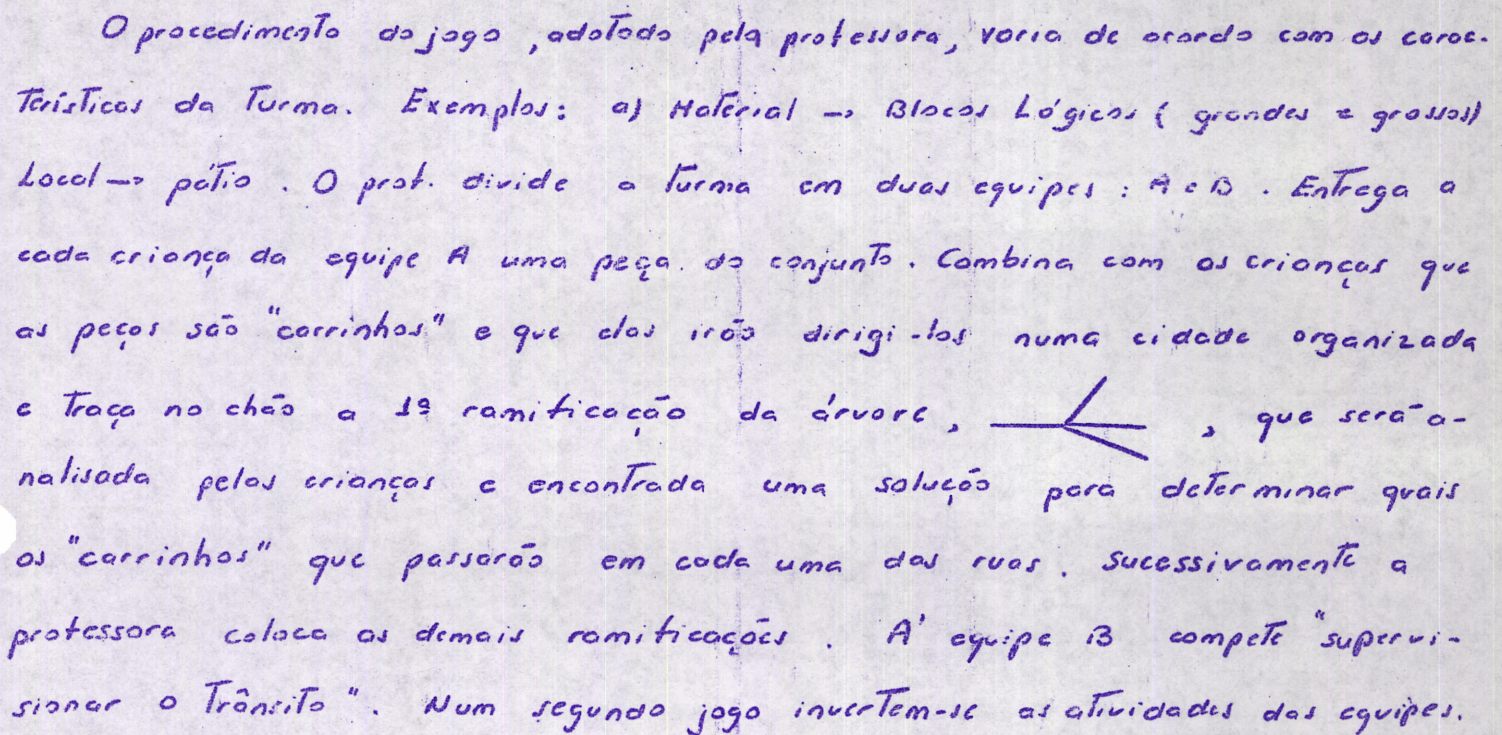 O procedimento do jogo, adotado pela professora, varia de acordo com as carac-
terísticas da turma. Exemplos: a) Material → Blocos Lógicos (grandes e grossos)
Local → pátio. O prof. divide a turma em duas equipes: A e B. Entrega a
cada criança da equipe A uma peça do conjunto. Combina com as crianças que
as peças são "carrinhos" e que elas irão dirigi-los numa cidade organizada
e traça no chão a 1ª ramificação da árvore, , que será a-
nalisada pelas crianças e encontrada uma solução para determinar quais
os "carrinhos" que passarão em cada uma das ruas. Sucessivamente a
professora coloca as demais ramificações. A' equipe B compete "supervi-
sionar o trânsito". Num segundo jogo invertem-se as atividades das equipes.